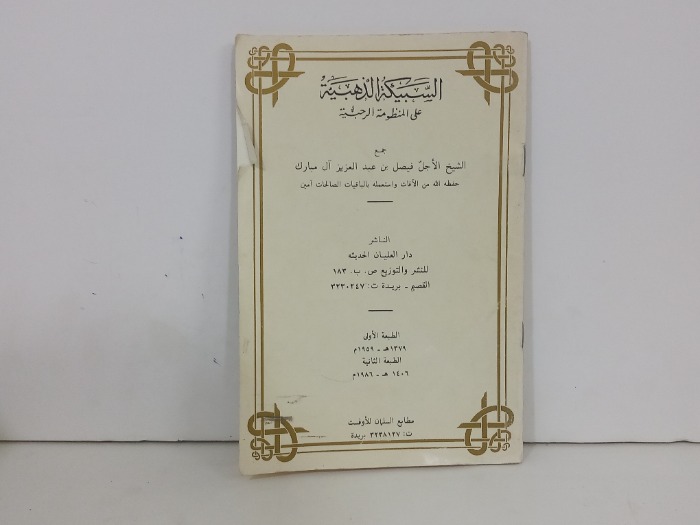 السبيكة الذهبية
على المنظومة الرحبية
جمع
الشيخ الأجل فيصل بن عبد العزيز آل مبارك
حفظه الله من الآفات واستعمله بالباقيات الصالحات آمين
الناشر
دار العليان الحديثه
للنشر والتوزيع ص. ب. ١٨٣
القصيم - بريدة ت: ٣٢٣٠٢٤٧
الطبعة الأولى
١٣٧٩هـ - ١٩٥٩م
الطبعة الثانية
١٤٠٦ هـ - ١٩٨٦م
مطابع السلمان للأوفست
ت: ٣٢٣٨١٢٧ بريدة